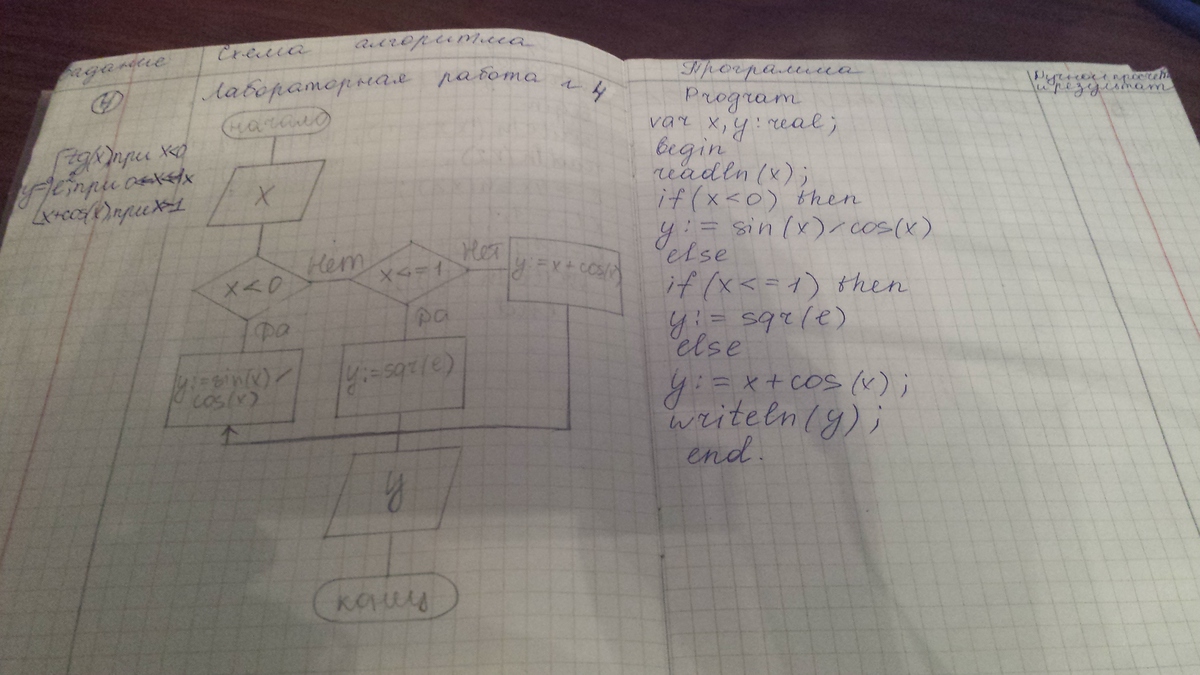 Задание
Схема алгоритма
Лабораторная работа №4
4
tg(x) при x<0
y=
x+cos(x) при x>1
начало
x
x<0
Нет
x<=1
Нет
y:=x+cos(x)
да
да
y:=sin(x)/
cos(x)
y:=sqr(e)
y
конец
Программа
Program
var x, y : real ;
begin
readln (x) ;
if (x<0) then
y := sin(x)/cos(x)
else
if (x<=1) then
y := sqr(e)
else
y := x+cos(x) ;
writeln(y) ;
end.
Ручной просчет
и результат